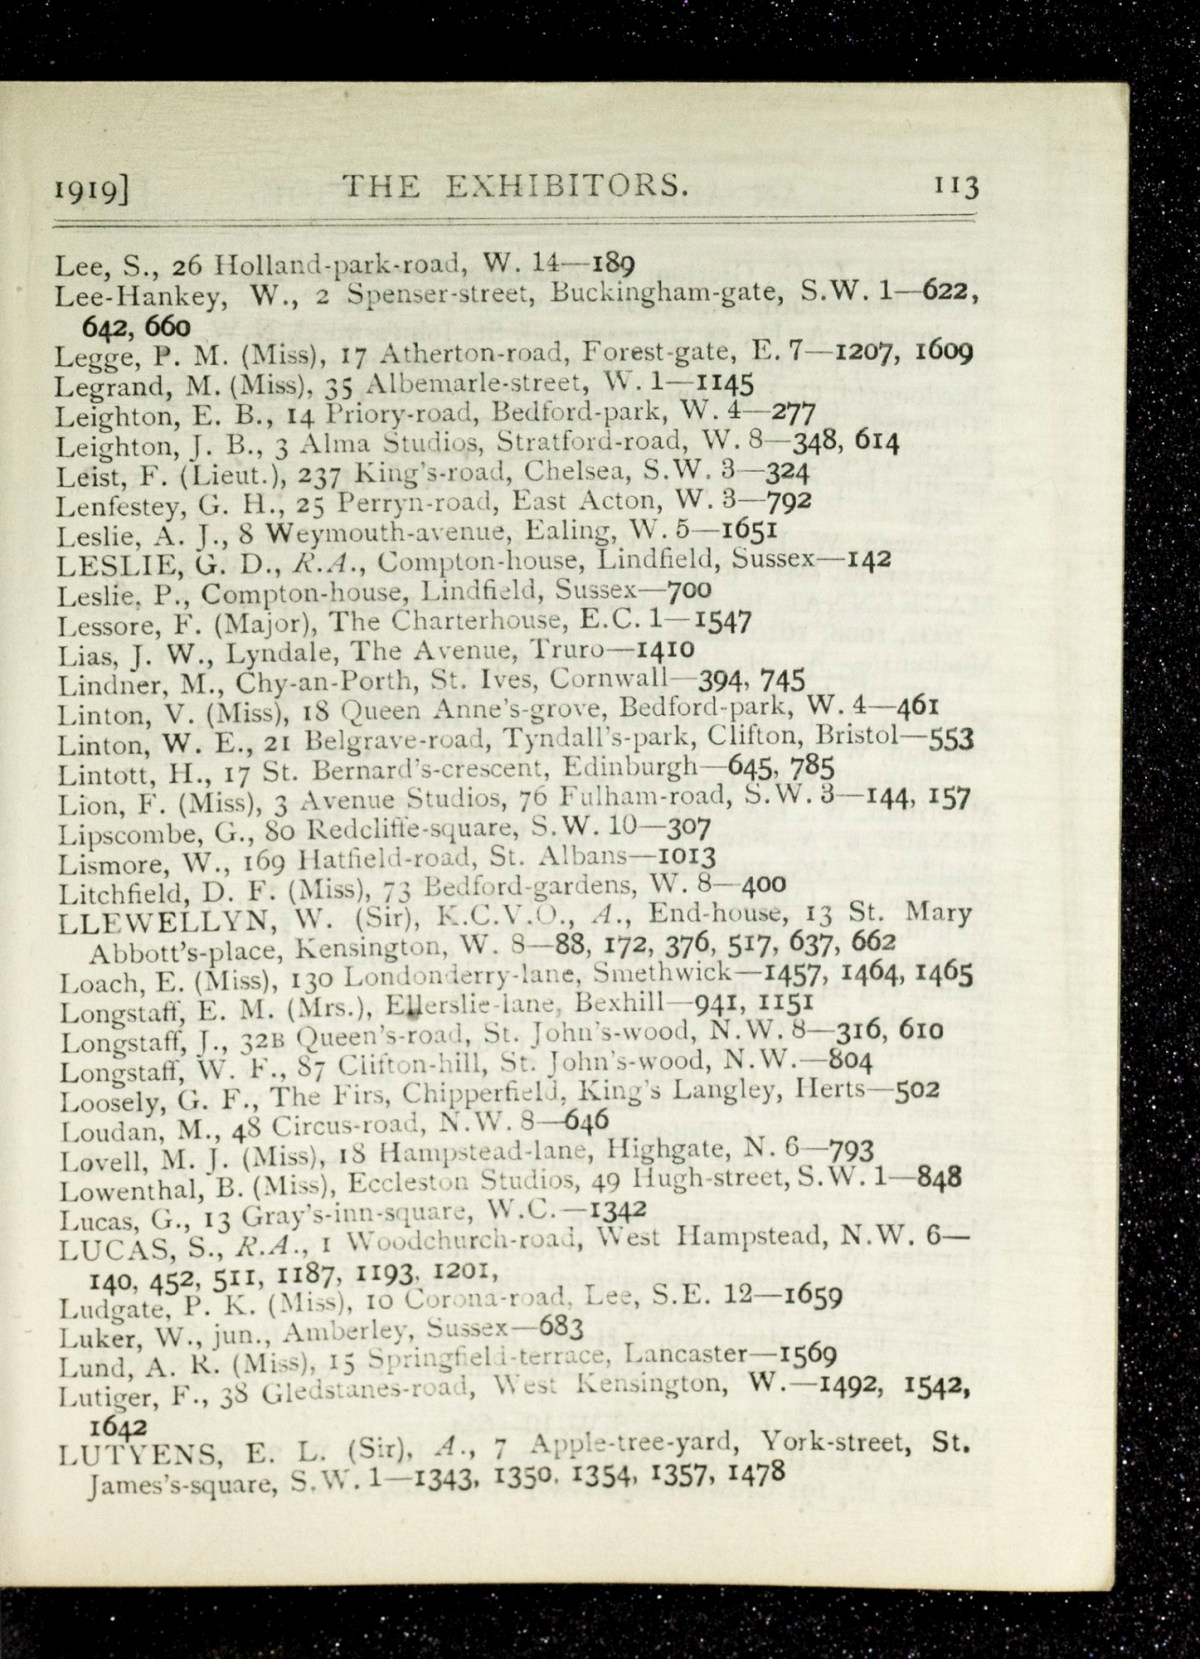 1919] THE EXHIBITORS. 113
Lee, S., 26 Holland-park-road, W. 14—189
Lee-Hankey, W., 2 Spenser-street, Buckingham-gate, S.W. 1—622,
642, 660
Legge, P. M. (Miss), 17 Atherton-road, Forest-gate, E. 7—1207, 1609
Legrand, M. (Miss), 35 Albemarle-street, W. 1—1145
Leighton, E. B., 14 Priory-road, Bedford-park, W. 4—277
Leighton, J. B., 3 Alma Studios, Stratford-road, W. 8—348, 614
Leist, F. (Lieut.), 237 King's-road, Chelsea, S.W. 3—324
Lenfestey, G. H., 25 Perryn-road, East Acton, W. 3—792
Leslie, A. J., 8 Weymouth-avenue, Ealing, W. 5—1651
LESLIE, G. D., R.A., Compton-house, Lindfield, Sussex—142
Leslie, P., Compton-house, Lindfield, Sussex—700
Lessore, F. (Major), The Charterhouse, E.C. 1—1547
Lias, J. W., Lyndale, The Avenue, Truro—1410
Lindner, M., Chy-an-Porth, St. Ives, Cornwall—394, 745
Linton, V. (Miss), 18 Queen Anne's-grove, Bedford-park, W. 4—461
Linton, W. E., 21 Belgrave-road, Tyndall's-park, Clifton, Bristol—553
Lintott, H., 17 St. Bernard's-crescent, Edinburgh—645, 785
Lion, F. (Miss), 3 Avenue Studios, 76 Fulham-road, S.W. 3—144, 157
Lipscombe, G., 80 Redcliffe-square, S.W. 10—307
Lismore, W., 169 Hatfield-road, St. Albans—1013
Litchfield, D. F. (Miss), 73 Bedford-gardens, W. 8—400
LLEWELLYN, W. (Sir), K.C.V.O., A., End-house, 13 St. Mary
Abbott's-place, Kensington, W. 8—88, 172, 376, 517, 637, 662
Loach, E. (Miss), 130 Londonderry-lane, Smethwick—1457, 1464, 1465
Longstaff, E. M. (Mrs.), Ellerslie-lane, Bexhill—941, 1151
Longstaff, J., 32B Queen's-road, St. John's-wood, N.W. 8—316, 610
Longstaff, W. F., 87 Clifton-hill, St. John's-wood, N.W.—804
Loosely, G. F., The Firs, Chipperfield, King's Langley, Herts—502
Loudan, M., 48 Circus-road, N.W. 8—646
Lovell, M. J. (Miss), 18 Hampstead-lane, Highgate, N. 6—793
Lowenthal, B. (Miss), Eccleston Studios, 49 Hugh-street, S.W. 1—848
Lucas, G., 13 Gray's-inn-square, W.C.—1342
LUCAS, S., R.A., 1 Woodchurch-road, West Hampstead, N.W. 6—
140, 452, 511, 1187, 1193, 1201,
Ludgate, P. K. (Miss), 10 Corona-road, Lee, S.E. 12—1659
Luker, W., jun., Amberley, Sussex—683
Lund, A. R. (Miss), 15 Springfield-terrace, Lancaster—1569
Lutiger, F., 38 Gledstanes-road, West Kensington, W.—1492, 1542,
1642
LUTYENS, E. L. (Sir), A., 7 Apple-tree-yard, York-street, St.
James's-square, S.W. 1—1343, 1350, 1354, 1357, 1478